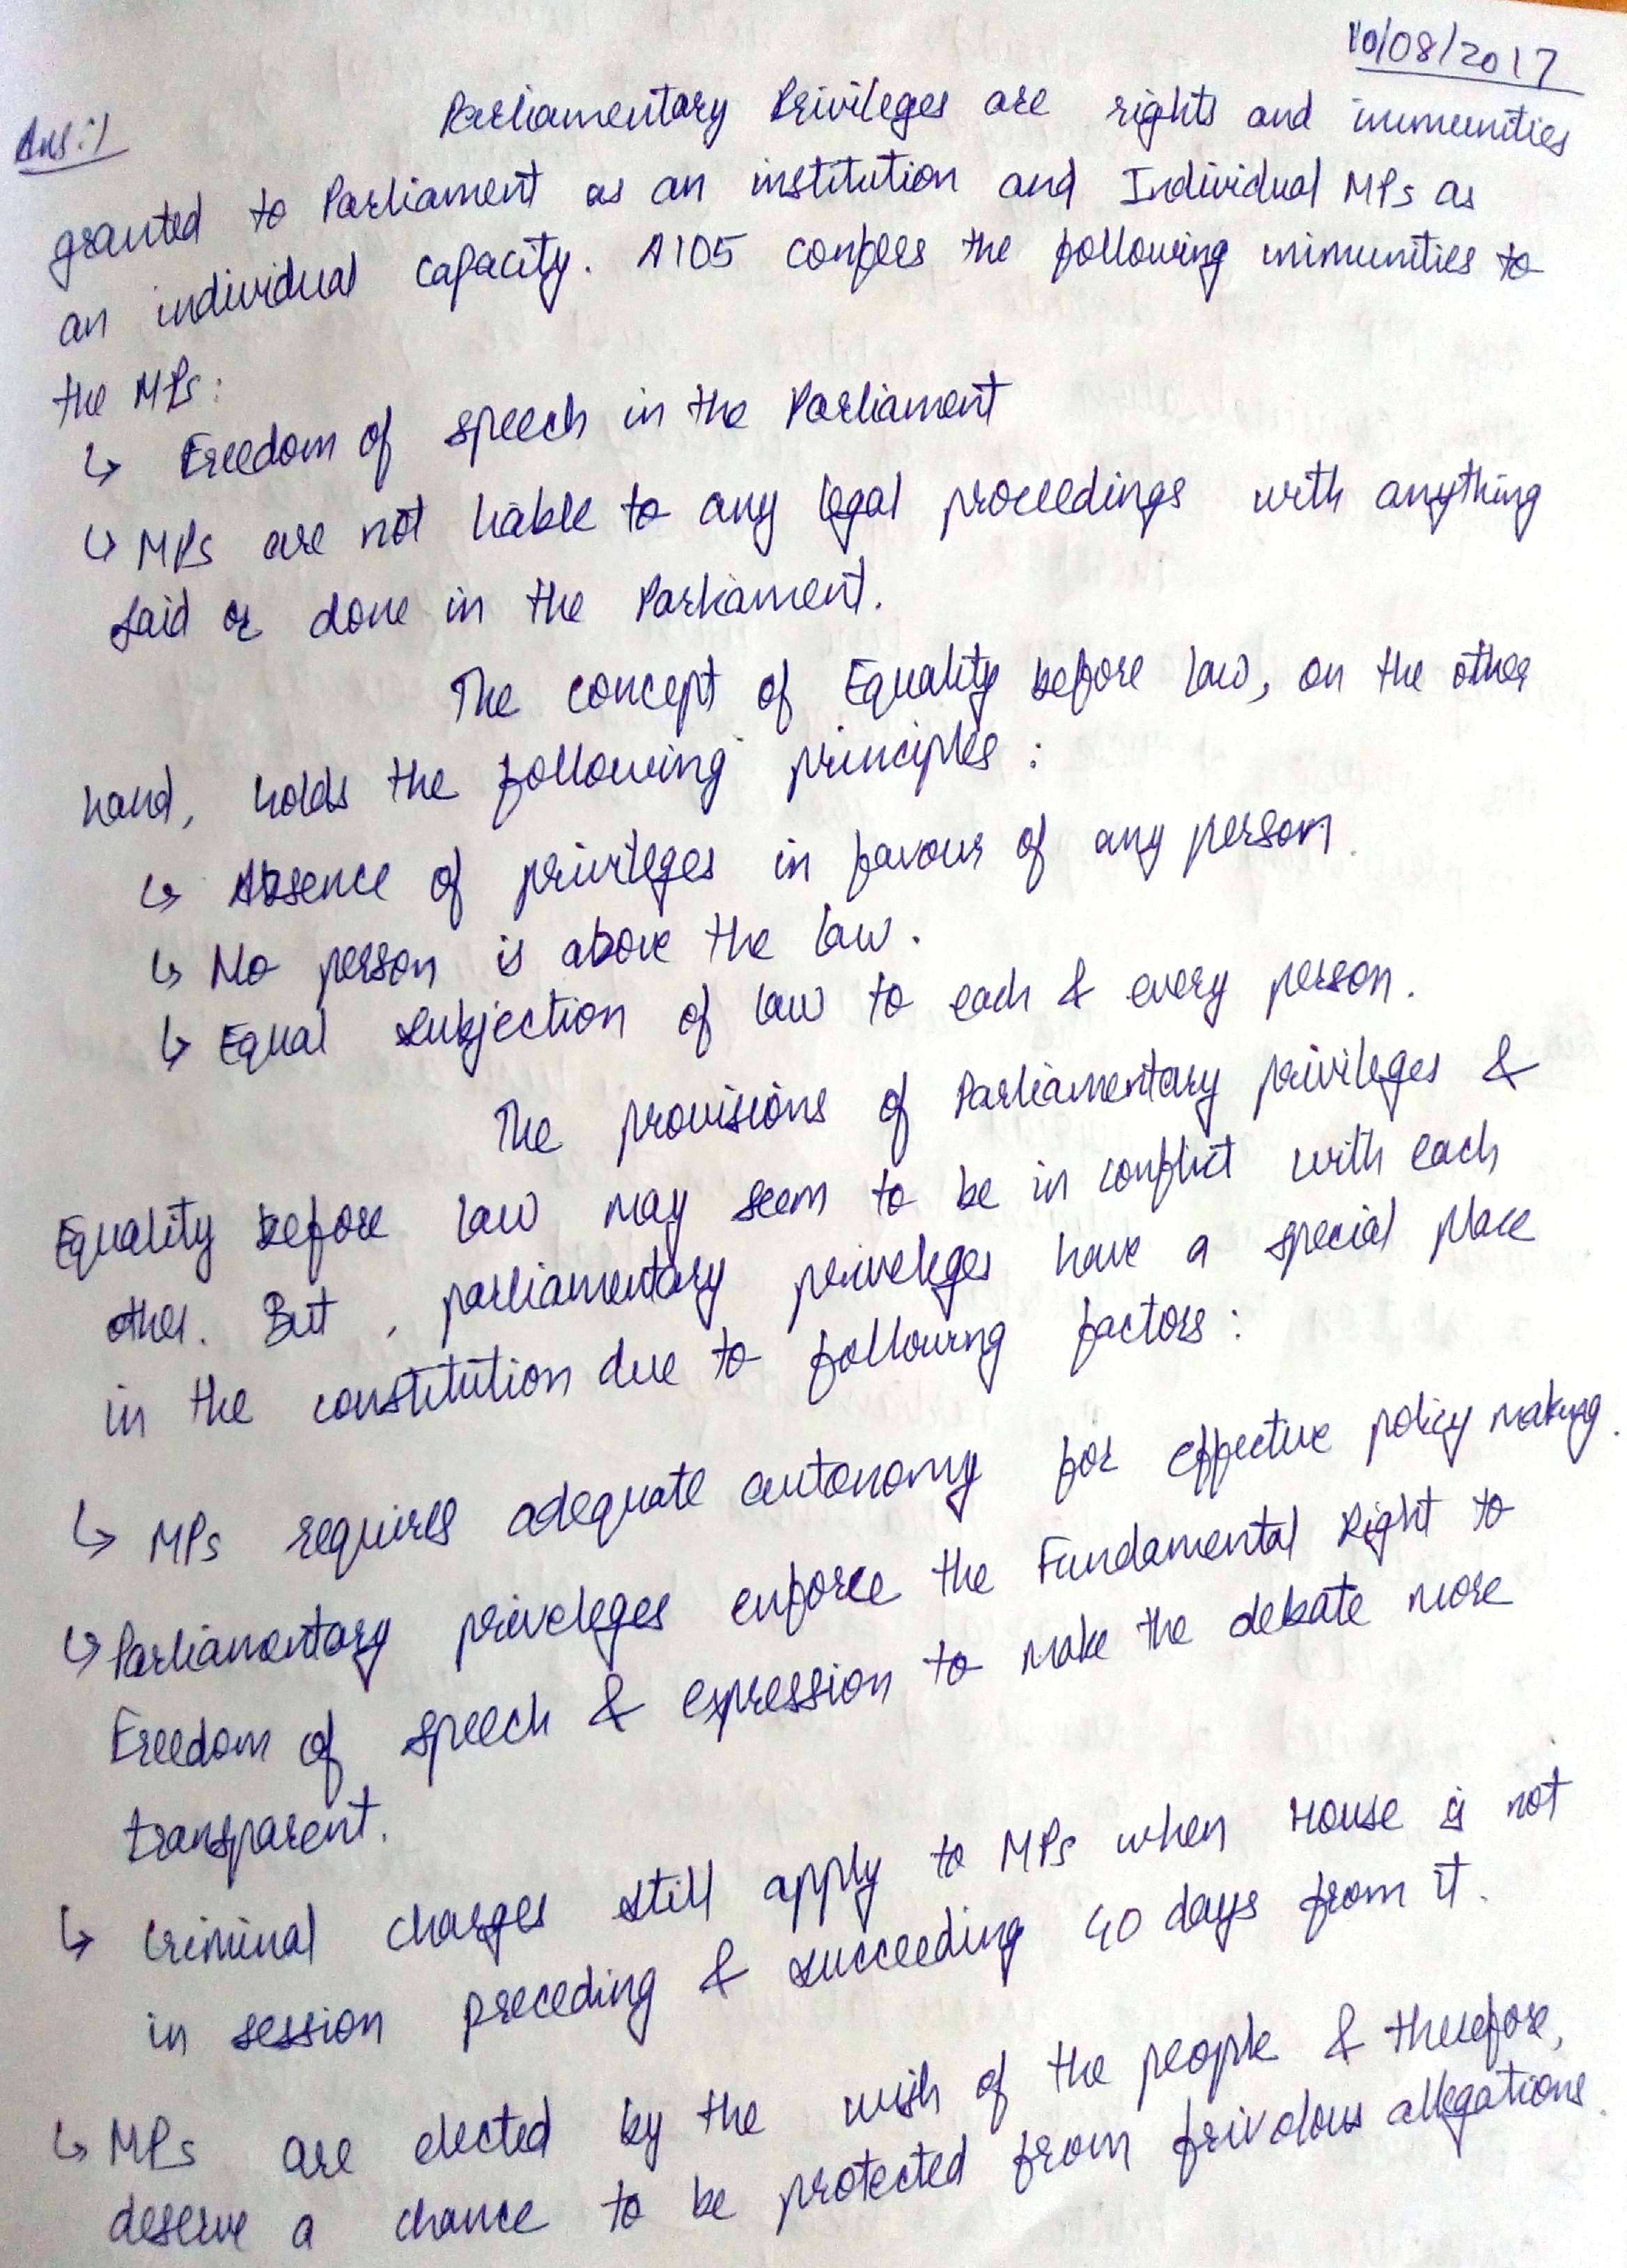 10/08/2017
Ans:1
Parliamentary Privileges are rights and immunities
granted to Parliament as an institution and Individual MPs as
an individual capacity. A105 confers the following immunities to
the MPs:
↳ Freedom of speech in the Parliament
↳ MPs are not liable to any legal proceedings with anything
said or done in the Parliament.
The concept of Equality before law, on the other
hand, holds the following principles :
↳ Absence of privileges in favour of any person.
↳ No person is above the law.
↳ Equal subjection of law to each & every person.
The provisions of Parliamentary privileges &
Equality before law may seem to be in conflict with each
other. But, parliamentary priveleges have a special place
in the constitution due to following factors :
↳ MPs requires adequate autonomy for effective policy making.
↳ Parliamentary priveleges enforce the Fundamental Right to
Freedom of speech & expression to make the debate more
transparent.
↳ Criminal charges still apply to MPs when House is not
in session preceding & succeeding 40 days from it.
↳ MPs are elected by the wish of the people & therefore,
deserve a chance to be protected from frivolous allegations.